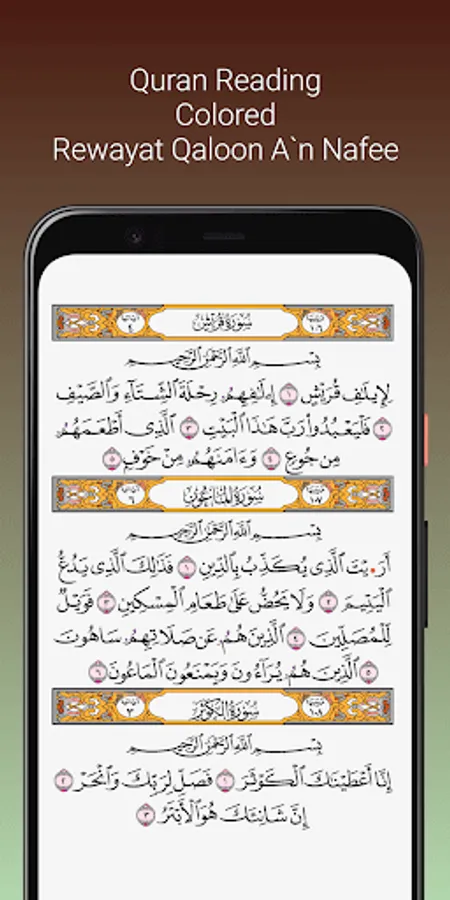 Quran Reading
Colored
Rewayat Qaloon A`n Nafee
سُورَةُ قُرَيْشٍ
بِسْمِ اللَّهِ الرَّحْمَٰنِ الرَّحِيمِ
لِإِيلَٰفِ قُرَيْشٍ ١ إِۦلَٰفِهِمُۥ رِحْلَةَ اَلشِّتَآءِ وَالصَّيْفِ
٢ فَلْيَعْبُدُواْ رَبَّ هَٰذَا اَلْبَيْتِ ٣ اَلَّذِى أَطْعَمَهُمُۥ
مِن جُوعٍ ٤ وَءَامَنَهُمُۥ مِنْ خَوْفٍ ٥
سُورَةُ الْمَاعُونِ
بِسْمِ اللَّهِ الرَّحْمَٰنِ الرَّحِيمِ
أَرَ•يْتَ اَلَّذِى يُكَذِّبُ بِالدِّينِ ١ فَذَٰلِكَ اَلَّذِى يَدُعُّ
اُلْيَتِيمَ ٢ وَلَا يَحُضُّ عَلَىٰ طَعَامِ اِلْمِسْكِينِ ٣ فَوَيْلٌ
لِلْمُصَلِّينَ ٤ اَلَّذِينَ هُمُۥ عَن صَلَاتِهِمُۥ سَاهُونَ
٥ اَلَّذِينَ هُمُۥ يُرَآءُونَ وَيَمْنَعُونَ اَلْمَاعُونَ ٦
سُورَةُ الْكَوْثَرِ
بِسْمِ اللَّهِ الرَّحْمَٰنِ الرَّحِيمِ
إِنَّا أَعْطَيْنَٰكَ اَلْكَوْثَرَ ١ فَصَلِّ لِرَبِّكَ وَانْحَرْ ٢
إِنَّ شَانِئَكَ هُوَ اَلْأَبْتَرُ ٣